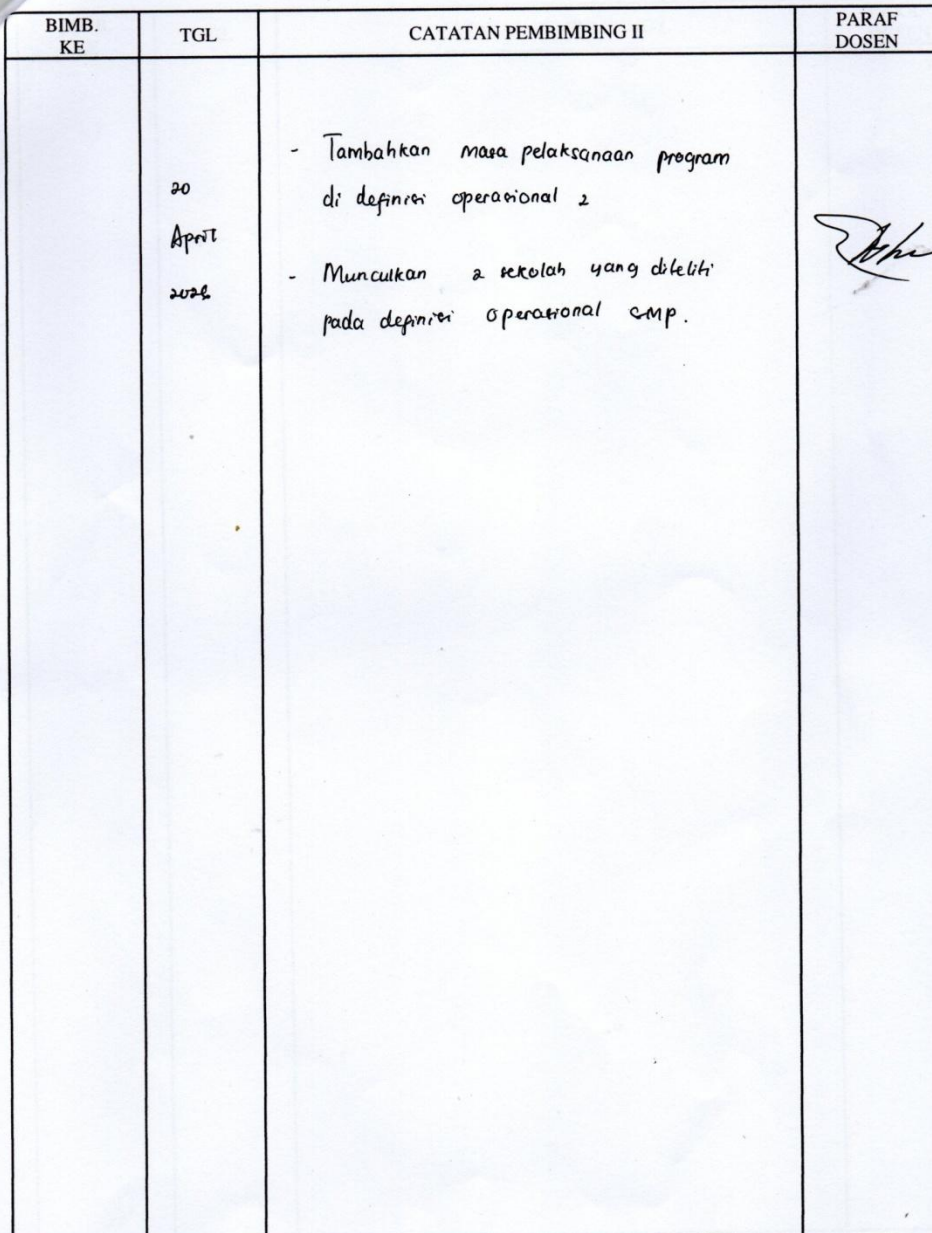 BIMB.
KE
TGL
CATATAN PEMBIMBING II
PARAF
DOSEN
20
April
- Tambahkan masa pelaksanaan program
di definisi operasional 2
- Munculkan 2 sekolah yang diteliti
pada definisi operasional SMP.